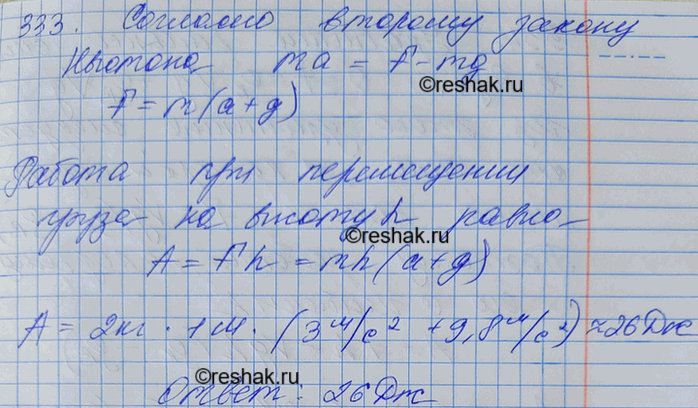 333. Согласно второму закону
Ньютона ma = F - mg
©reshak.ru
F = m(a+g)
Работа при перемещении
груза на высоту h равно
©reshak.ru
A = Fh = mh(a+g)
A = 2кг · 1м · (3 м/с² + 9,8 м/с²) ≈ 26 Дж
©reshak.ru
Ответ: 26 Дж